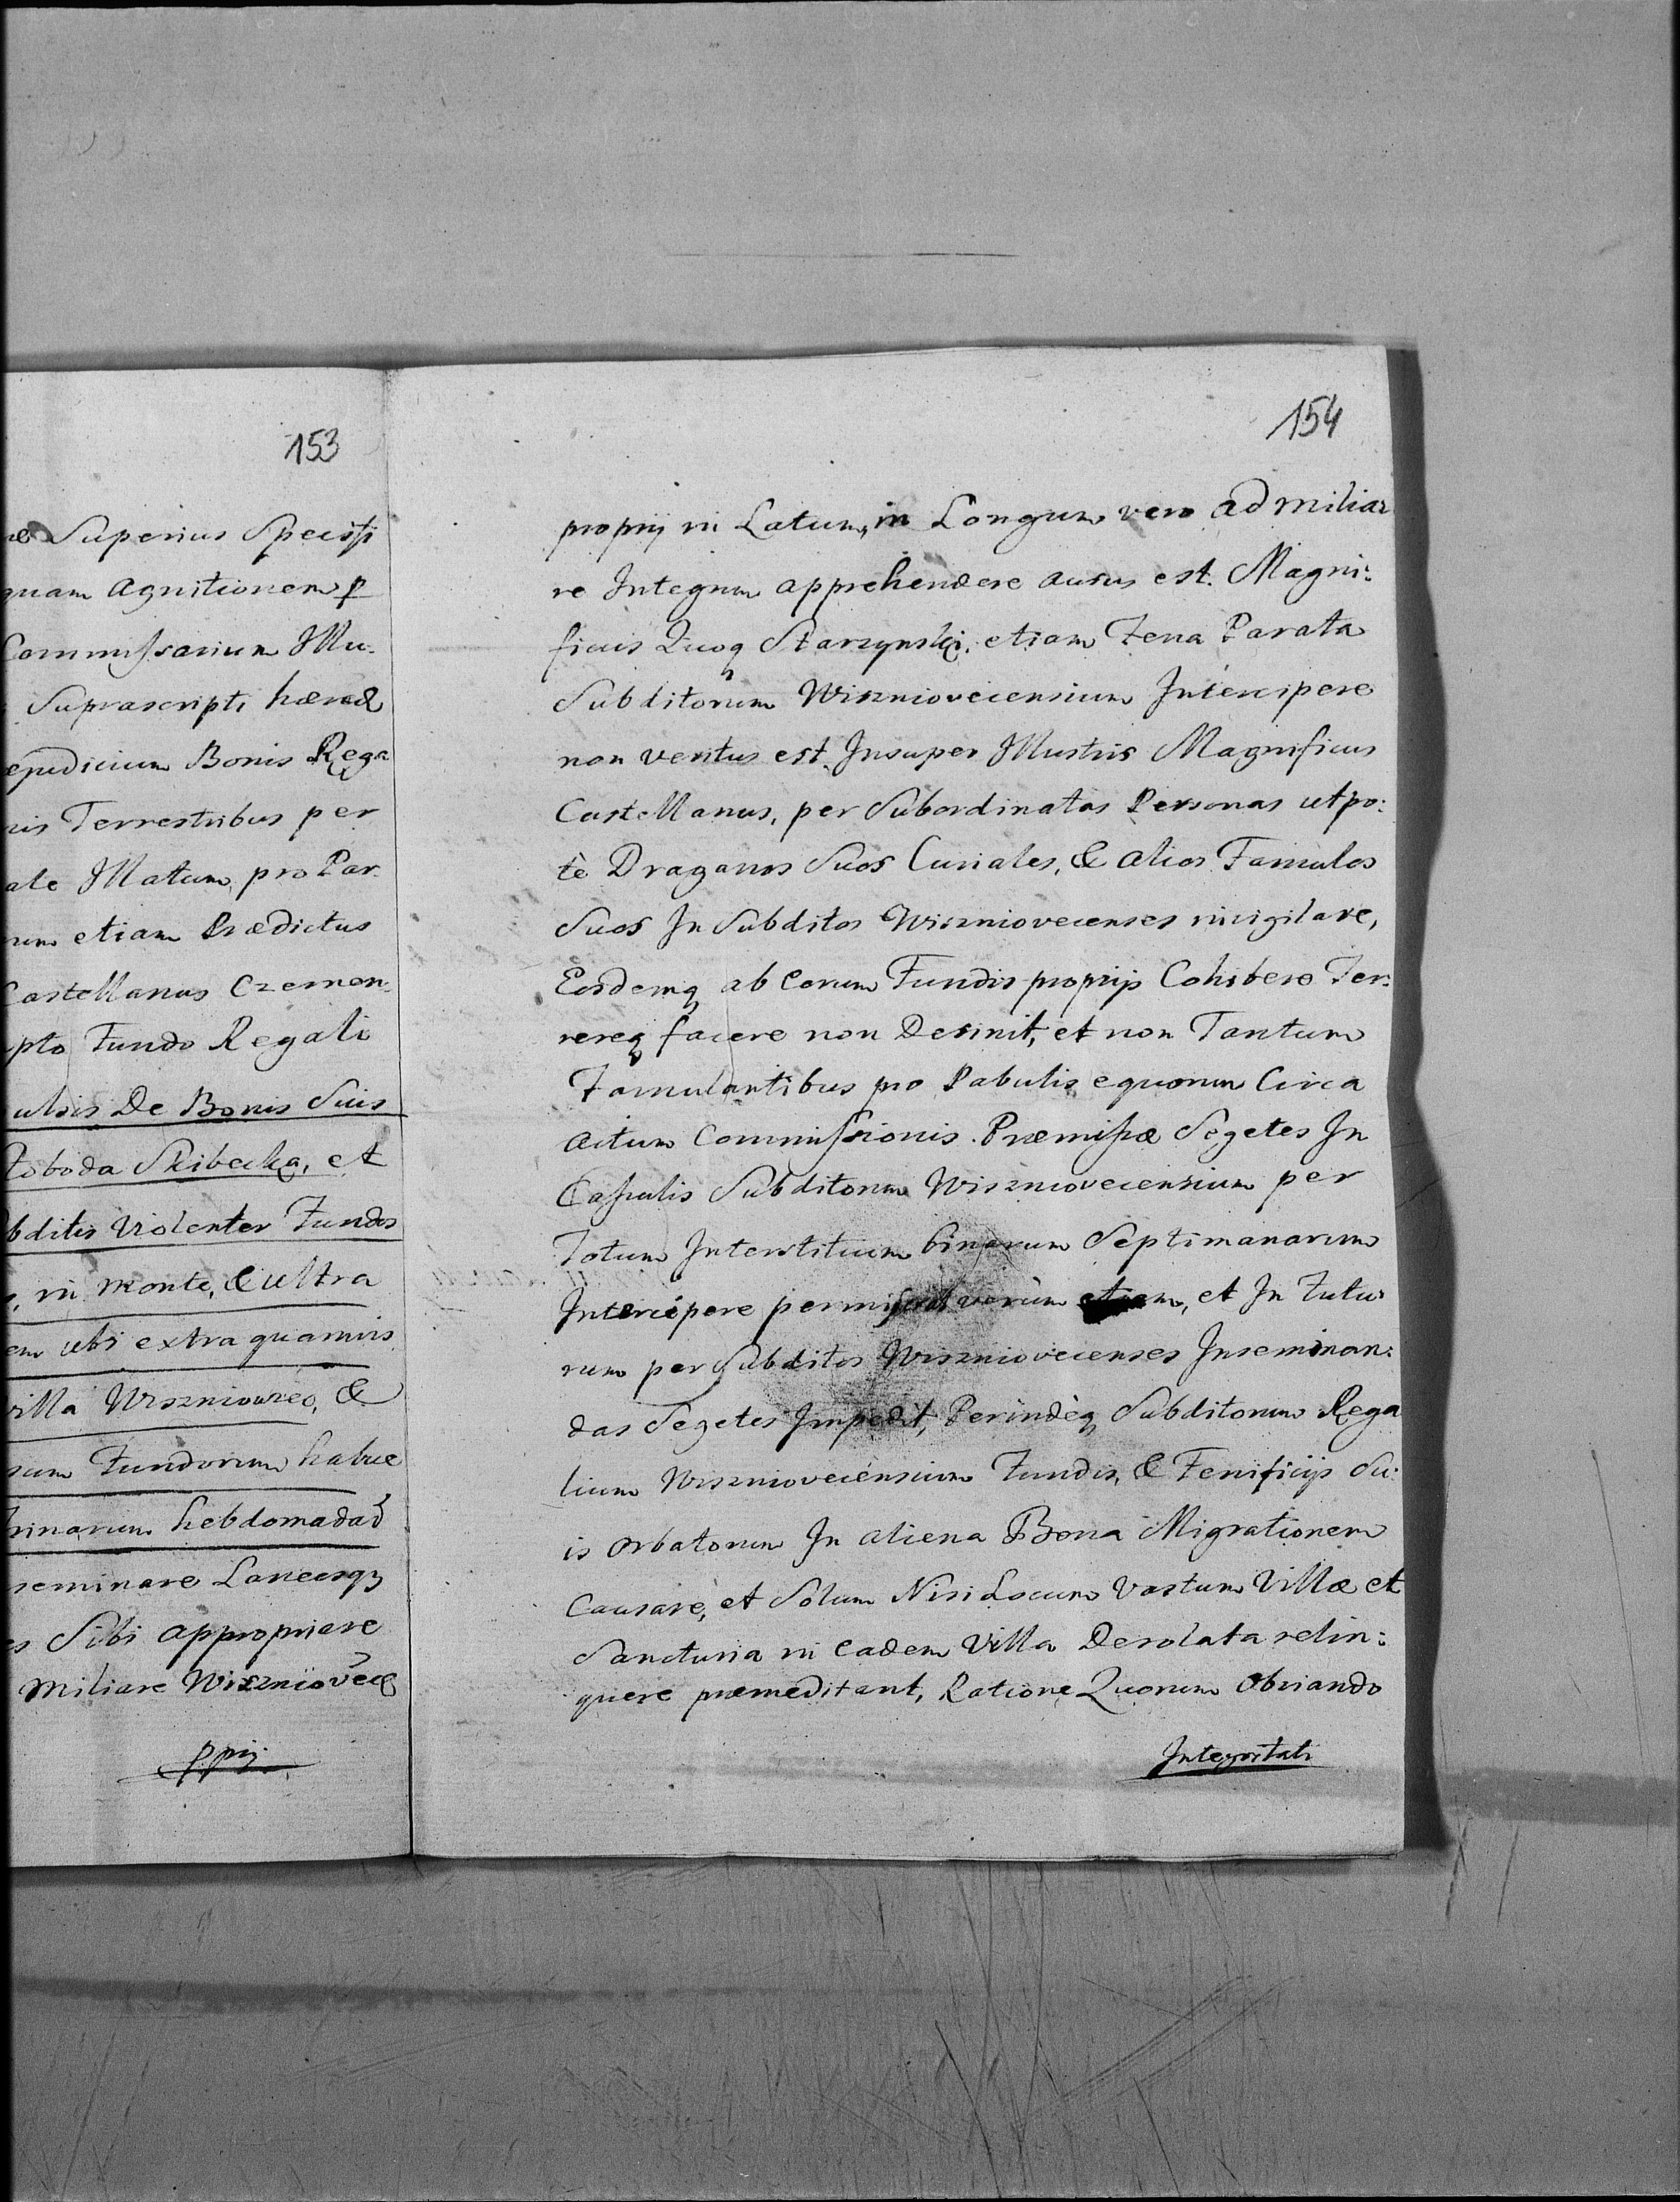 153
Superius Specifi
quam agnitionem p
Commissarium Illu-
Suprascripti hæred
ejudicium Bonis Rega
nis Terrestribus per
ale Illatum, pro Par
rum etiam Prædictus
Castellanus Czernon-
pto Fundo Regali
ulsis De Bonis Suis
łoboda Skibecka, et
bditis Violenter Fundos
, in Monte, & ultra
em ubi extra quamvis
villa Wiszniowiec, &
sum Fundorum habue
trinarum hebdomadar
seminare Laneosq
es Sibi appropriare
Miliare Wiszniovec
ppij
154
proprij in Latum, in Longum vero ad miliar
re Integrum apprehendere ausus est. Magni:
ficus Quoq Starzynski. etiam Fena Parata
Subditorum Wisznioveciensium Intercipere
non veritus est. Insuper Illustris Magnificus
Castellanus, per Subordinatas Personas utpo:
tè Draganos Suos Curiales, & alios Famulos
Suos In Subditos Wiszniovecenses invigilare,
Eosdemq ab eorum Fundis proprijs Cohibere Ter:
rereq facere non Desinit, et non Tantum
Famulantibus pro Pabulis equorum Circa
actum Commissionis Præmissæ Segetes In
Cassulis Subditorum Wisznioveciensium per
Totum Interstitium binarum Septimanarum
Intercipere permiserat verùm etiam, et In Futu
rum per Subditos Wiszniovecenses Inseminan:
das Segetes Impedit, Perindèq Subditorum Rega
lium Wisznioveciensium Fundis, & Fenificijs Su:
is orbatorum In aliena Bona Migrationem
Causare, et Solum Nisi Locum Vastum Villæ et
Sancturia in eadem Villa Desolata relin:
quere præmeditant, Ratione Quorum Obviando
Integritati